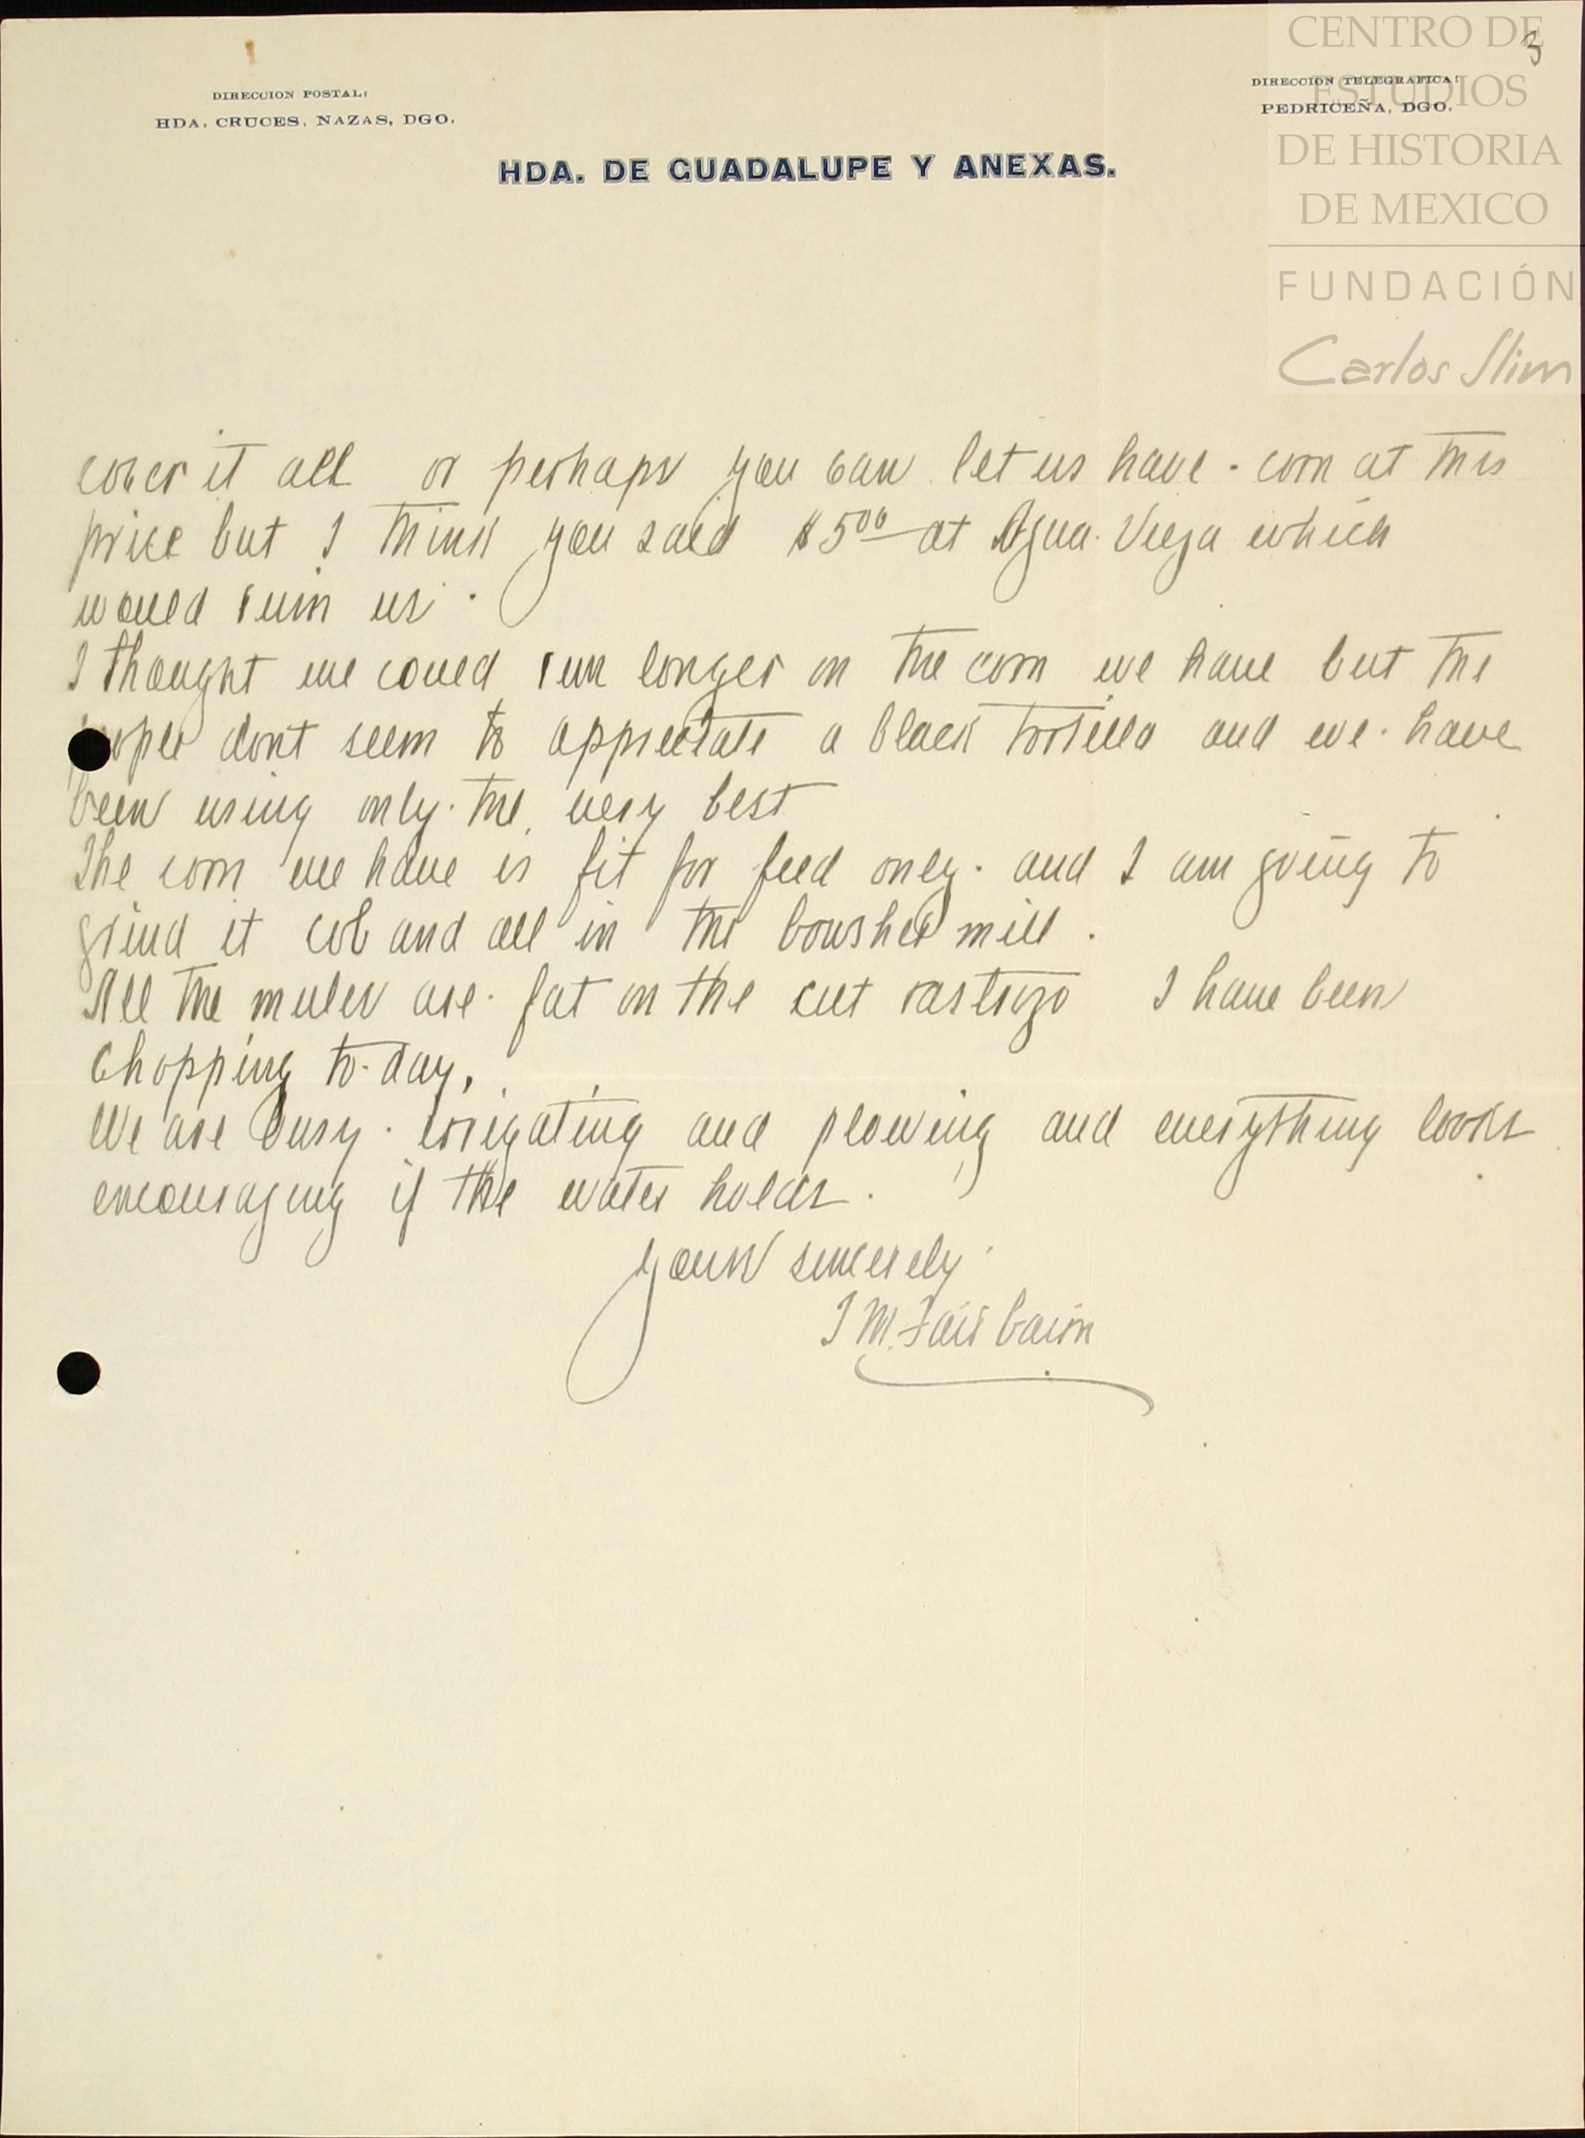 3
DIRECCION POSTAL:
HDA. CRUCES. NAZAS, DGO.
DIRECCION TELEGRAFICA:
PEDRICEÑA, DGO.
HDA. DE GUADALUPE Y ANEXAS.
CENTRO DE
ESTUDIOS
DE HISTORIA
DE MEXICO
FUNDACIÓN
Carlos Slim
cover it all or perhaps you can let us have corn at this
price but I think you said $5.00 at Agua Vieja which
would ruin us.
I thought we could run longer on the corn we have but the
people dont seem to appreciate a black tortilla and we have
been using only the very best
The corn we have is fit for feed only. and I am going to
grind it cob and all in the bowsher mill.
All the mules are fat on the cut rastrojo I have been
chopping to-day.
We are busy irrigating and plowing and everything looks
encouraging if the water holds.
Yours sincerely
J M. Fairbairn